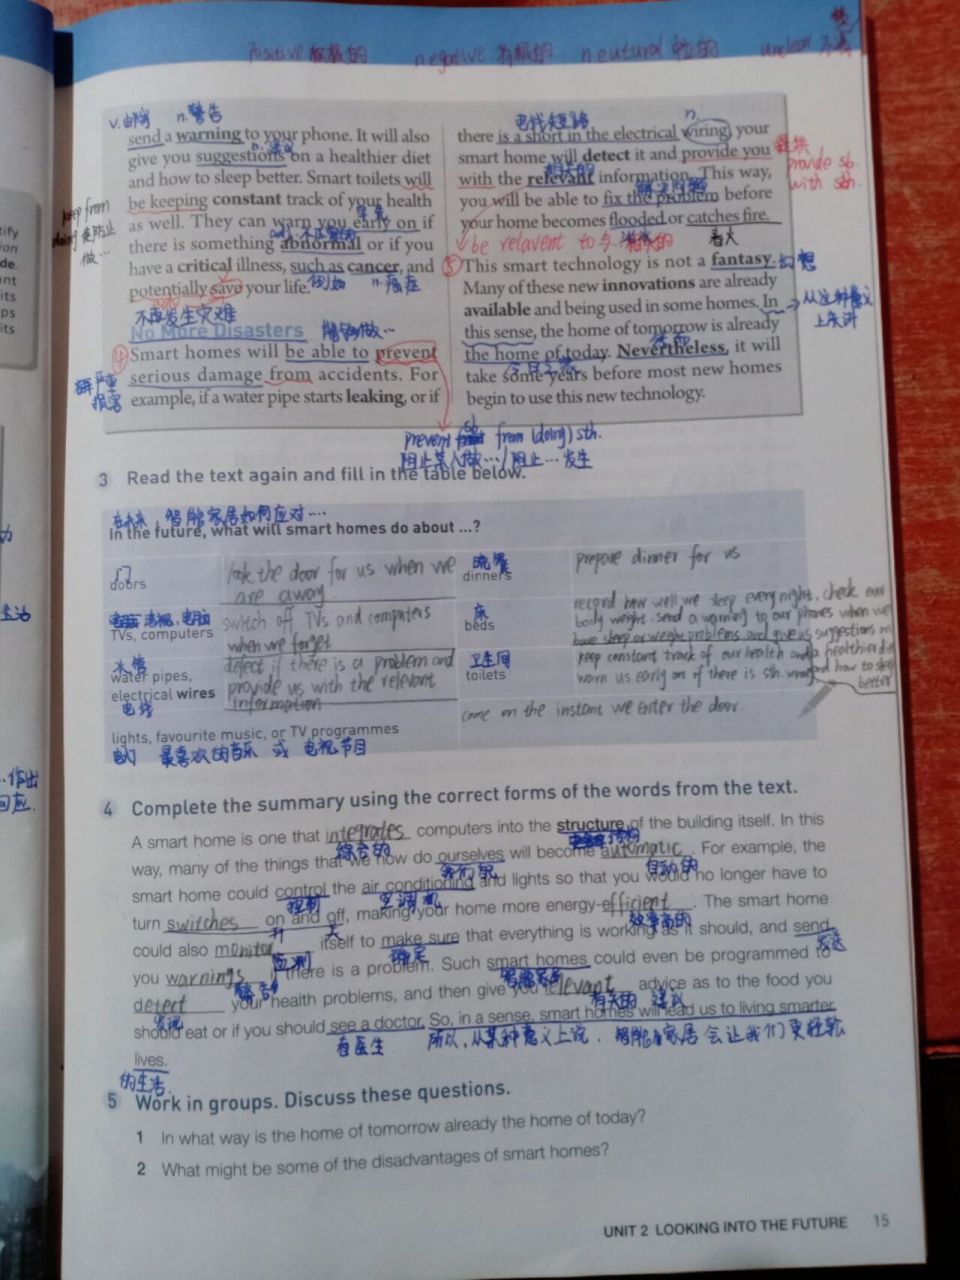 positive 积极的 negative 消极的 neutural 中立的 unclear 不清
v.邮寄 n.警告
send a warning to your phone. It will also
give you suggestions on a healthier diet
and how to sleep better. Smart toilets will
be keeping constant track of your health
as well. They can warn you early on if
there is something abnormal or if you
have a critical illness, such as cancer, and
potentially save your life.
例如 n.癌症
keep from
doing 使防止
做…
不再发生灾难
No More Disasters 能够做…
④ Smart homes will be able to prevent
serious damage from accidents. For
example, if a water pipe starts leaking, or if
严重
损害
电线短路 n.
there is a short in the electrical wiring, your
smart home will detect it and provide you
with the relevant information. This way,
you will be able to fix the problem before
your home becomes flooded or catches fire.
提供
provide sb.
with sth.
相关的
解决问题
着火
be relavent to 与…相关的
⑤ This smart technology is not a fantasy. 幻想
Many of these new innovations are already
available and being used in some homes. In
this sense, the home of tomorrow is already
the home of today. Nevertheless, it will
take some years before most new homes
begin to use this new technology.
从这种意义
上来讲
prevent sb from (doing) sth.
阻止某人做…/阻止…发生
3 Read the text again and fill in the table below.
在未来，智能家居如何应对….
In the future, what will smart homes do about ...?
门
doors
lock the door for us when we
are away
晚餐
dinners
prepare dinner for us
电视，电脑
TVs, computers
switch off TVs and computers
when we forget
床
beds
record how well we sleep every night, check our
body weight. send a warning to our phones when we
have sleep or weight problems and give us suggestions on
a healthier diet
and how to sleep
better
水管
water pipes,
electrical wires
电线
detect if there is a problem and
provide us with the relevant
information
卫生间
toilets
keep constant track of our health and
warn us early on if there is sth. wrong
lights, favourite music, or TV programmes
电灯 最喜欢的音乐 或 电视节目
come on the instant we enter the door
4 Complete the summary using the correct forms of the words from the text.
A smart home is one that integrates computers into the structure of the building itself. In this
way, many of the things that we now do ourselves will become automatic. For example, the
综合的 我们的 自动的
smart home could control the air conditioning and lights so that you would no longer have to
控制 空调机
turn switches on and off, making your home more energy-efficient. The smart home
开 关 效率高的
could also monitor itself to make sure that everything is working as it should, and send
监测 确定 发送
you warnings if there is a problem. Such smart homes could even be programmed to
警告 智能家居
detect your health problems, and then give you relevant advice as to the food you
发现 有关的 建议
should eat or if you should see a doctor. So, in a sense, smart homes will lead us to living smarter
看医生 所以，从某种意义上说，智能家居会让我们更轻松
lives.
的生活.
5 Work in groups. Discuss these questions.
1 In what way is the home of tomorrow already the home of today?
2 What might be some of the disadvantages of smart homes?
UNIT 2 LOOKING INTO THE FUTURE 15